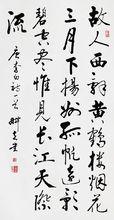 故人西辭黄鶴樓烟花
三月下揚州孤帆遠影
碧空尽惟見長江天際
流 唐李白詩